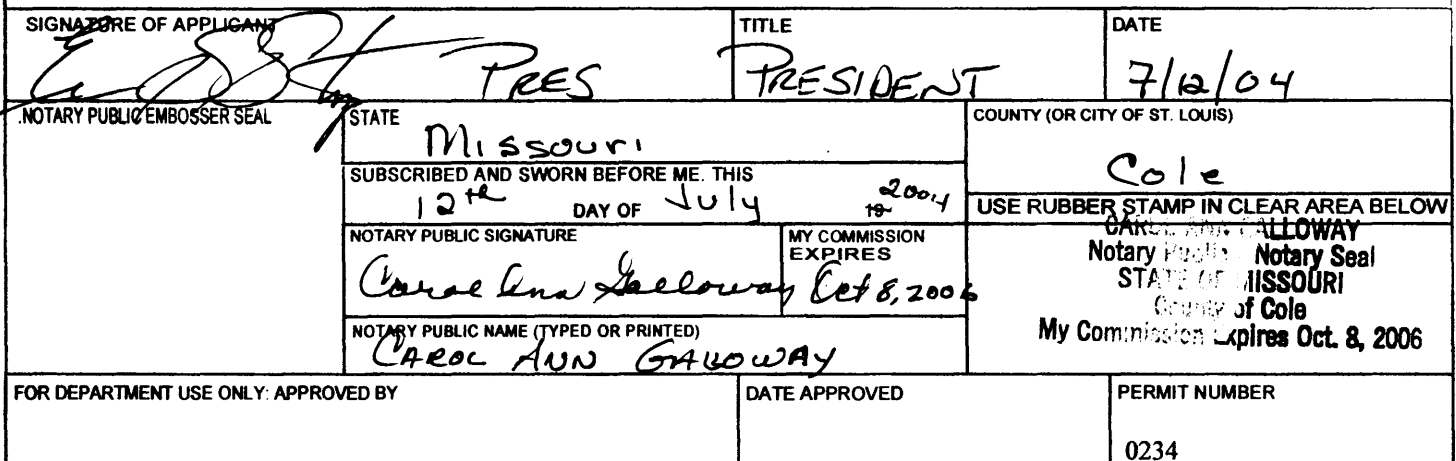 SIGNATURE OF APPLICANT
TITLE
DATE
PRES
PRESIDENT
7/12/04
NOTARY PUBLIC EMBOSSER SEAL
STATE
Missouri
COUNTY (OR CITY OF ST. LOUIS)
Cole
SUBSCRIBED AND SWORN BEFORE ME. THIS
12th DAY OF July 19 2004
USE RUBBER STAMP IN CLEAR AREA BELOW
CAROL ANN GALLOWAY
Notary Public Notary Seal
STATE OF MISSOURI
County of Cole
My Commission Expires Oct. 8, 2006
NOTARY PUBLIC SIGNATURE
Carol Ann Galloway
MY COMMISSION
EXPIRES
Oct 8, 2006
NOTARY PUBLIC NAME (TYPED OR PRINTED)
CAROL ANN GALLOWAY
FOR DEPARTMENT USE ONLY: APPROVED BY
DATE APPROVED
PERMIT NUMBER
0234